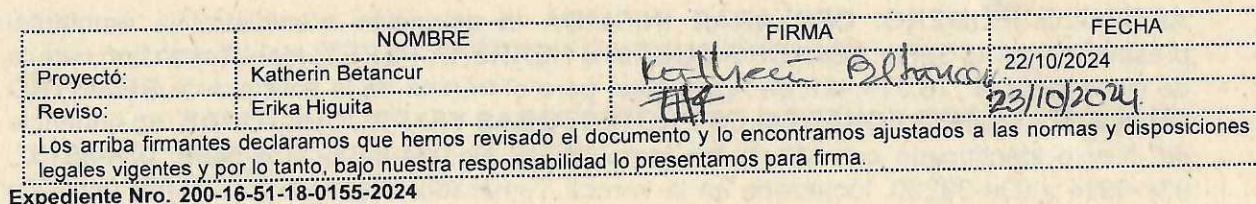 NOMBRE FIRMA FECHA
Proyectó: Katherin Betancur Katherin Betancur 22/10/2024
Reviso: Erika Higuita 23/10/2024
Los arriba firmantes declaramos que hemos revisado el documento y lo encontramos ajustados a las normas y disposiciones
legales vigentes y por lo tanto, bajo nuestra responsabilidad lo presentamos para firma.
Expediente Nro. 200-16-51-18-0155-2024